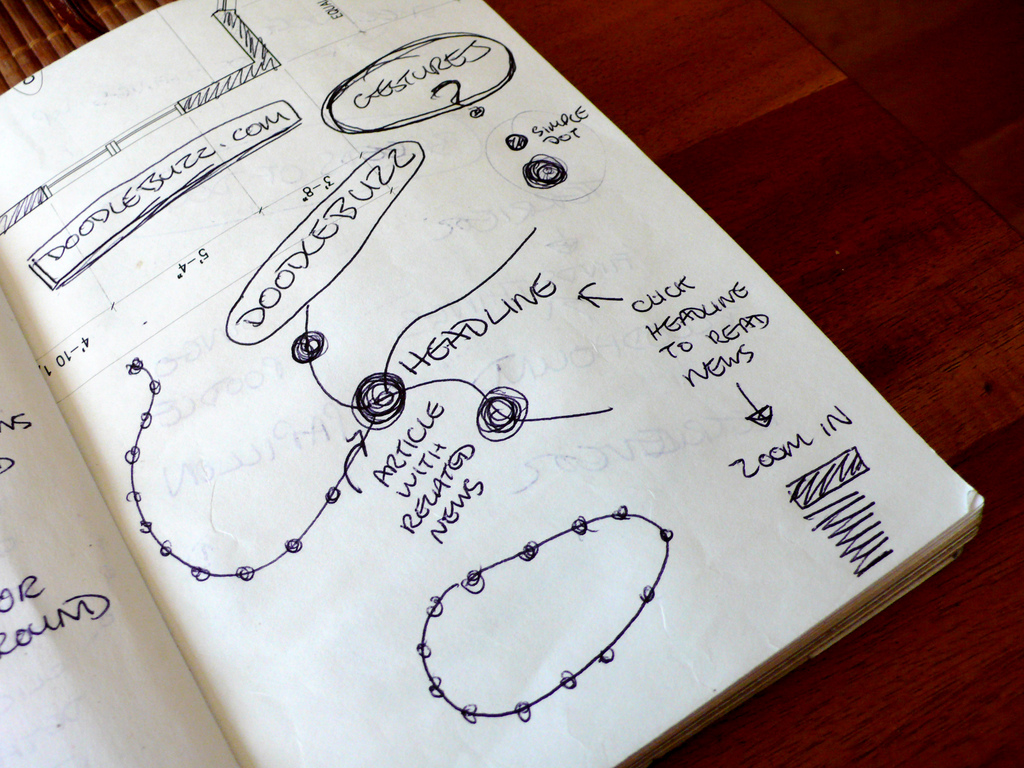 EQUAL
GESTURES
?
DOODLEBUZZ.COM
SIMPLE
DOT
DOODLEBUZZ
3'-8"
5'-4"
4'-10
HEADLINE
CLICK
HEADLINE
TO READ
NEWS
ZOOM IN
ARTICLE
WITH
RELATED
NEWS
OR
ROUND